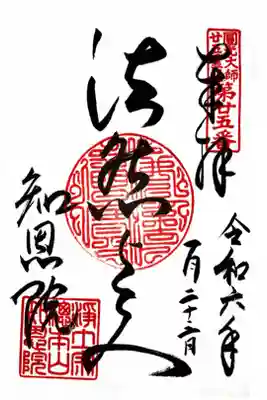 圓光大師
第廿五番
奉拝
令和六年
一月二十二日
法然上人
知恩院
浄土宗
総本山
知恩院